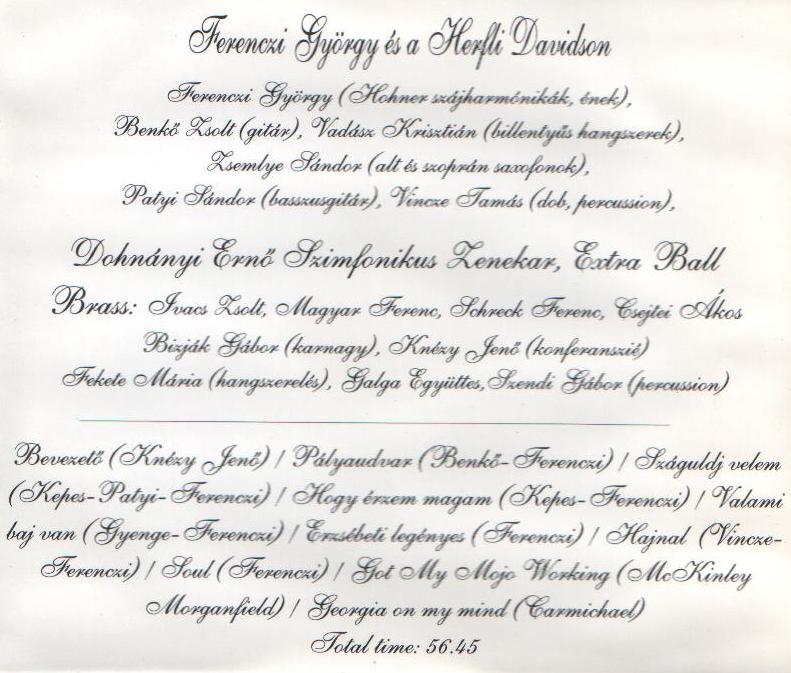 Ferenczi György és a Herfli Davidson
Ferenczi György (Hohner szájharmónikák, ének),
Benkő Zsolt (gitár), Vadász Krisztián (billentyűs hangszerek),
Zsemlye Sándor (alt és szoprán saxofonok),
Patyi Sándor (basszusgitár), Vincze Tamás (dob, percussion),
Dohnányi Ernő Szimfonikus Zenekar, Extra Ball
Brass: Ivacs Zsolt, Magyar Ferenc, Schreck Ferenc, Csejtei Ákos
Bizják Gábor (karnagy), Knézy Jenő (konferanszié)
Fekete Mária (hangszerelés), Galga Együttes, Szendi Gábor (percussion)
Bevezető (Knézy Jenő) / Pályaudvar (Benkő- Ferenczi) / Száguldj velem
(Kepes-Patyi-Ferenczi) / Hogy érzem magam (Kepes- Ferenczi) / Valami
baj van (Gyenge- Ferenczi) / Erzsébeti legényes (Ferenczi) / Hajnal (Vincze-
Ferenczi) / Soul (Ferenczi) / Got My Mojo Working (McKinley
Morganfield) / Georgia on my mind (Carmichael)
Total time: 56.45